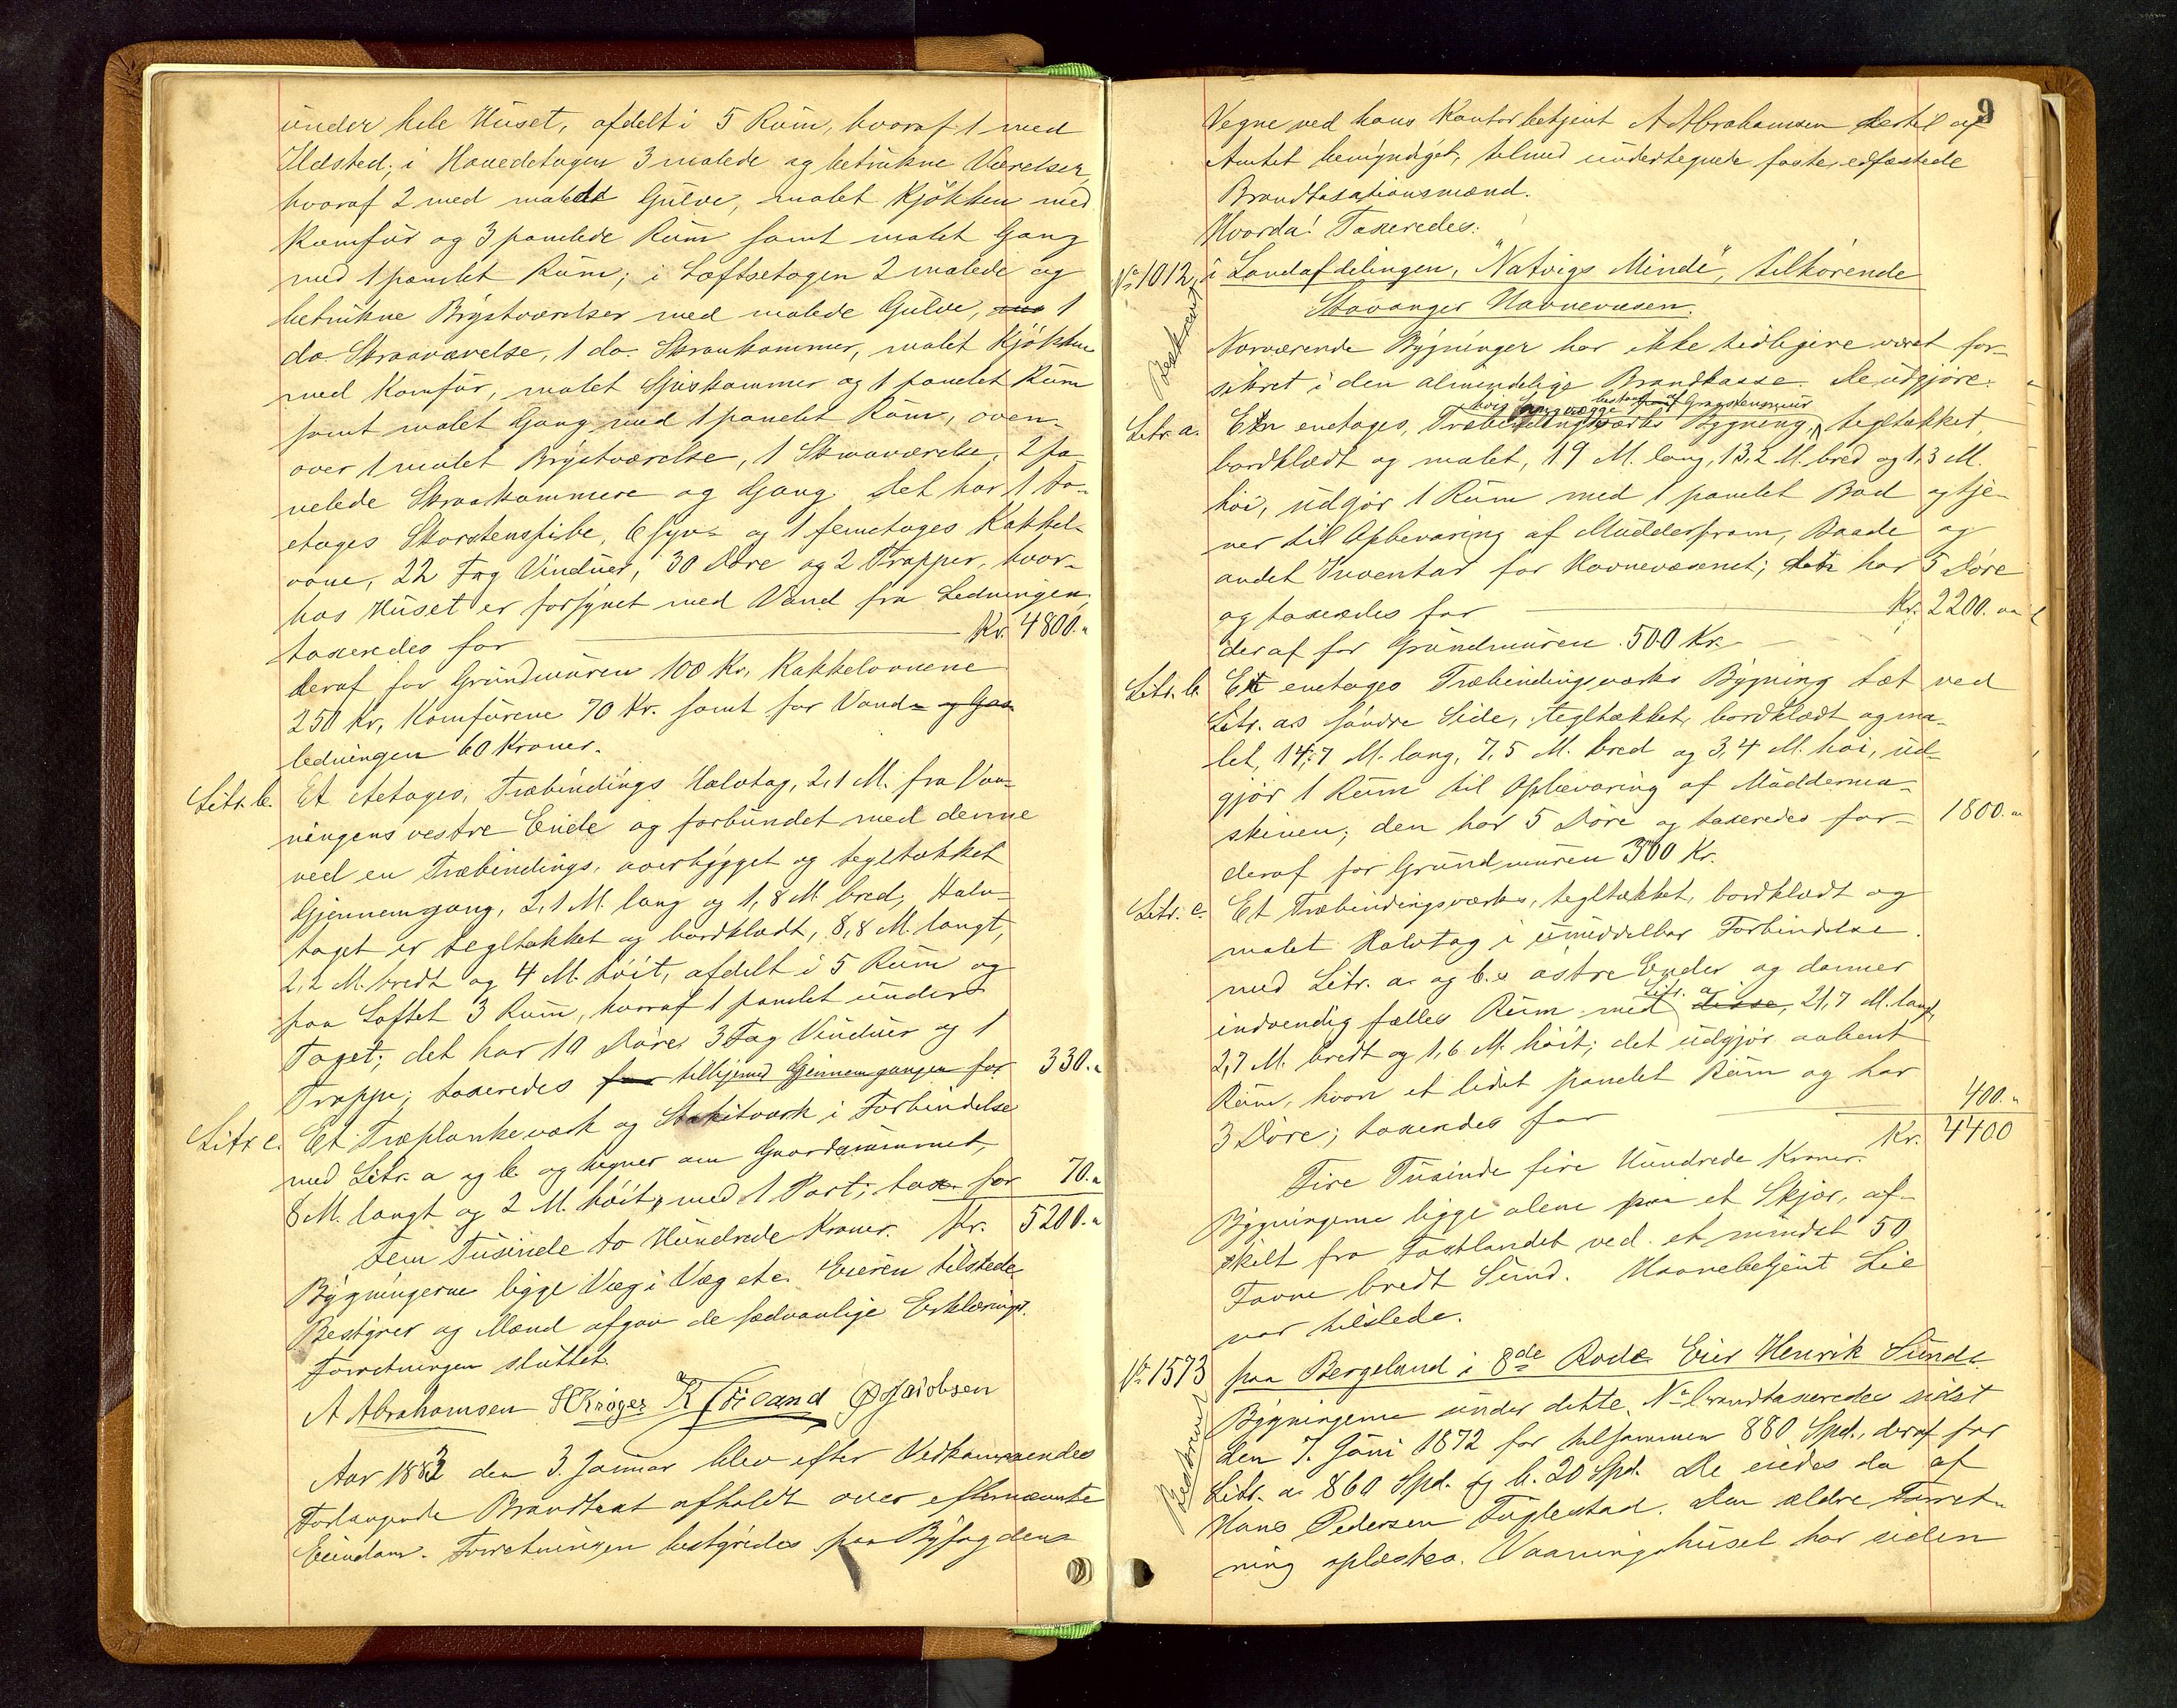 under hele Huset, afdelt i 5 Rum, hvoraf 1 med
Ildsted; i Hovedetagen 3 malede og betrukne Værelser,
hvoraf 2 med malede Gulve, malet Kjøkken med
Komfur og 3 panelede Rum samt malet Gang
med 1 panelet Rum; i Loftsetagen 2 malede og
betrukne Brystværelser med malede Gulve, 1
do. Skraaværelse, 1 do. Skraakammer, malet Kjøkken
med Komfur, malet Spiskammer og 1 panelet Rum
samt malet Gang med 1 panelet Rum, oven-
over 1 malet Brystværelse, 1 Skraaværelse, 2 pa-
nelede Skraakammere og Gang. Det har 1 to-
etages Skorstenspibe, 6 syv- og 1 femetages Kakkel-
ovne, 22 Fag Vinduer, 30 Døre og 2 Trapper, hvor-
hos Huset er forsynet med Vand fra Ledningen,
taxeredes for Kr. 4800."
deraf for Grundmuren 100 Kr, Kakkelovnene
250 Kr, Komfurene 70 Kr. samt for Vand- og Gas-
ledningen 60 Kroner.
Litr. b. Et etetages, Træbindings Halvtag, 2,1 M. fra Vaa-
ningens vestre Ende og forbundet med denne
ved en Træbindings, overbygget og tegltækket
Gjennemgang, 2,1 M. lang og 1,8 M. bred, Halv-
taget er tegltækket og bordklædt, 8,8 M. langt,
2,2 M. bredt og 4 M. höit, afdelt i 5 Rum og
paa Loftet 3 Rum, hvoraf 1 panelet under
Taget; det har 10 Döre, 3 Fag Vinduer og 1
Trappe; taxeredes for tilligemed Gjennemgangen for 330."
Litr c. Et Træplankeværk og Stakitværk i Forbindelse
med Litr. a og b. og hegner om Gaardsrummet,
8 M. langt og 2 M. höit, med 1 Port; tax. for 70."
Fem Tusinde to Hundrede Kroner. Kr. 5200."
Bygningerne ligge Væg i Væg etc. Eieren tilstede.
Bestyrer og Mænd afgav de sædvanlige Erklæringr.
Forretningen sluttet.
A Abrahamsen H Krøger Ø Jacobsen
Aar 1883 den 3. Januar blev efter Vedkommendes
Forlangende Brandtaxt afholdt over efternævnte
Eiendom. Forretningen bestyredes paa Byfogdens
9
Vegne ved hans Kontorbetjent A Abrahamsen dertil af
Amtet bemyndiget, tilmed undertegnede faste, edfæstede
Brandtaxationsmænd.
Hvorda! Taxeredes:
No 1012, i Landafdelingen, "Natvigs Minde", tilhørende
Stavanger Havnevæsen.
Beskrevet
Nærværende Bygninger har ikke tidligere været for-
sikret i den almindelige Brandkasse. De udgjøre:
hvis Langvægge bestaar af Graastensmur
Litr. a. En enetages, Træbindingsværks Bygning, tegltækket,
bordklædt og malet, 19 M. lang, 13,2 M. bred og 1,3 M.
høi, udgør 1 Rum med 1 panelet Bod og tje-
ner til Opbevaring af Mudderpram, Baade og
andet Inventar for Havnevæsenet; den har 5 Døre
og taxeredes for Kr. 2200.
deraf for Grundmuren 500 Kr.
Litr. b. En enetages Træbindingsværks Bygning tæt ved
Litr. a.s søndre Side, tegltækket, bordklædt og ma-
let, 14,7 M. lang, 7,5 M. bred og 3,4 M. høi, ud-
gjør 1 Rum til Opbevaring af Mudderma-
skinen; den har 5 Döre og taxeredes for 1800."
deraf for Grundmuren 300 Kr.
Litr. c. Et Træbindingsværks, tegltækket, bordklædt og
malet Halvtag i umiddelbar Forbindelse
med Litr. a. og b.s østre Ender og danner
Litr. a
indvendig fælles Rum med disse, 21,7 M. langt,
2,7 M. bredt og 1,6 M. höit; det udgjør aabent
Rum, hvori et lidet panelet Rum og har
3 Döre; taxeredes for 400."
Kr. 4400
Fire Tusinde fire Hundrede Kroner.
Bygningerne ligge alene paa et Skjær, af-
skilt fra Fastlandet ved et mindst 50
Favne bredt Sund. Havnebetjent Lie
var tilstede.
No 1573 paa Bergeland i 8de Rode. Eier Henrik Sunde.
Beskrevet
Bygningerne under dette No brandtaxeredes sidst
den 7. Juni 1872 for tilsammen 880 Spd., deraf for
Litr. a. 860 Spd. og b. 20 Spd. De eiedes da af
Hans Pedersen Fuglestad. Den ældre Forret-
ning oplæstes. Vaaningshuset har siden